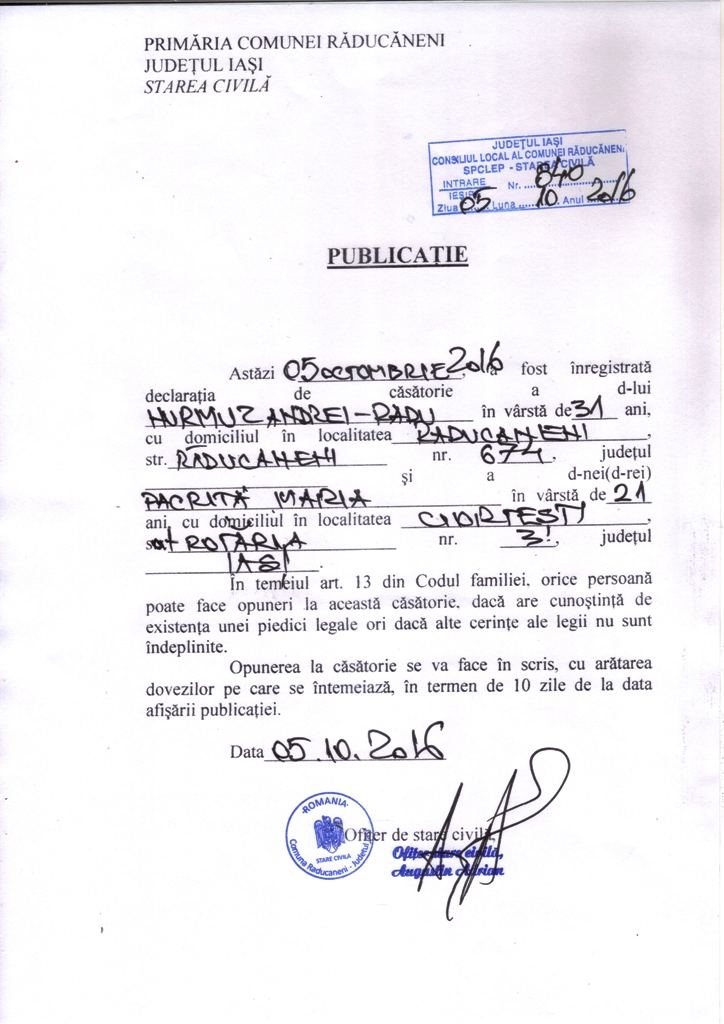 PRIMĂRIA COMUNEI RĂDUCĂNENI
JUDEŢUL IAŞI
STAREA CIVILĂ
JUDEŢUL IAŞI
CONSILIUL LOCAL AL COMUNEI RĂDUCĂNENI
SPCLEP - STAREA CIVILĂ
INTRARE Nr. 840
IEŞIRE
Ziua 05 Luna 10. Anul 2016
PUBLICAŢIE
Astăzi 05 OCTOMBRIE 2016, a fost înregistrată
declaraţia de căsătorie a d-lui
HURMUZ ANDREI-RADU în vârstă de 31 ani,
cu domiciliul în localitatea RĂDUCANENI,
str. RĂDUCANENI nr. 674, judeţul
şi a d-nei(d-rei)
PACRITĂ MARIA în vârstă de 21
ani, cu domiciliul în localitatea CIORTESTI,
sat ROTĂRIA nr. judeţul
IASI.
În temeiul art. 13 din Codul familiei, orice persoană
poate face opuneri la această căsătorie, dacă are cunoştinţă de
existenţa unei piedici legale ori dacă alte cerinţe ale legii nu sunt
îndeplinite.
Opunerea la căsătorie se va face în scris, cu arătarea
dovezilor pe care se întemeiază, în termen de 10 zile de la data
afişării publicaţiei.
Data 05.10.2016
Ofiţer de stare civilă,
Ofiţer stare civilă,
Augustin Adrian
ROMANIA
STARE CIVILA
Comuna Raducaneni - Judetul